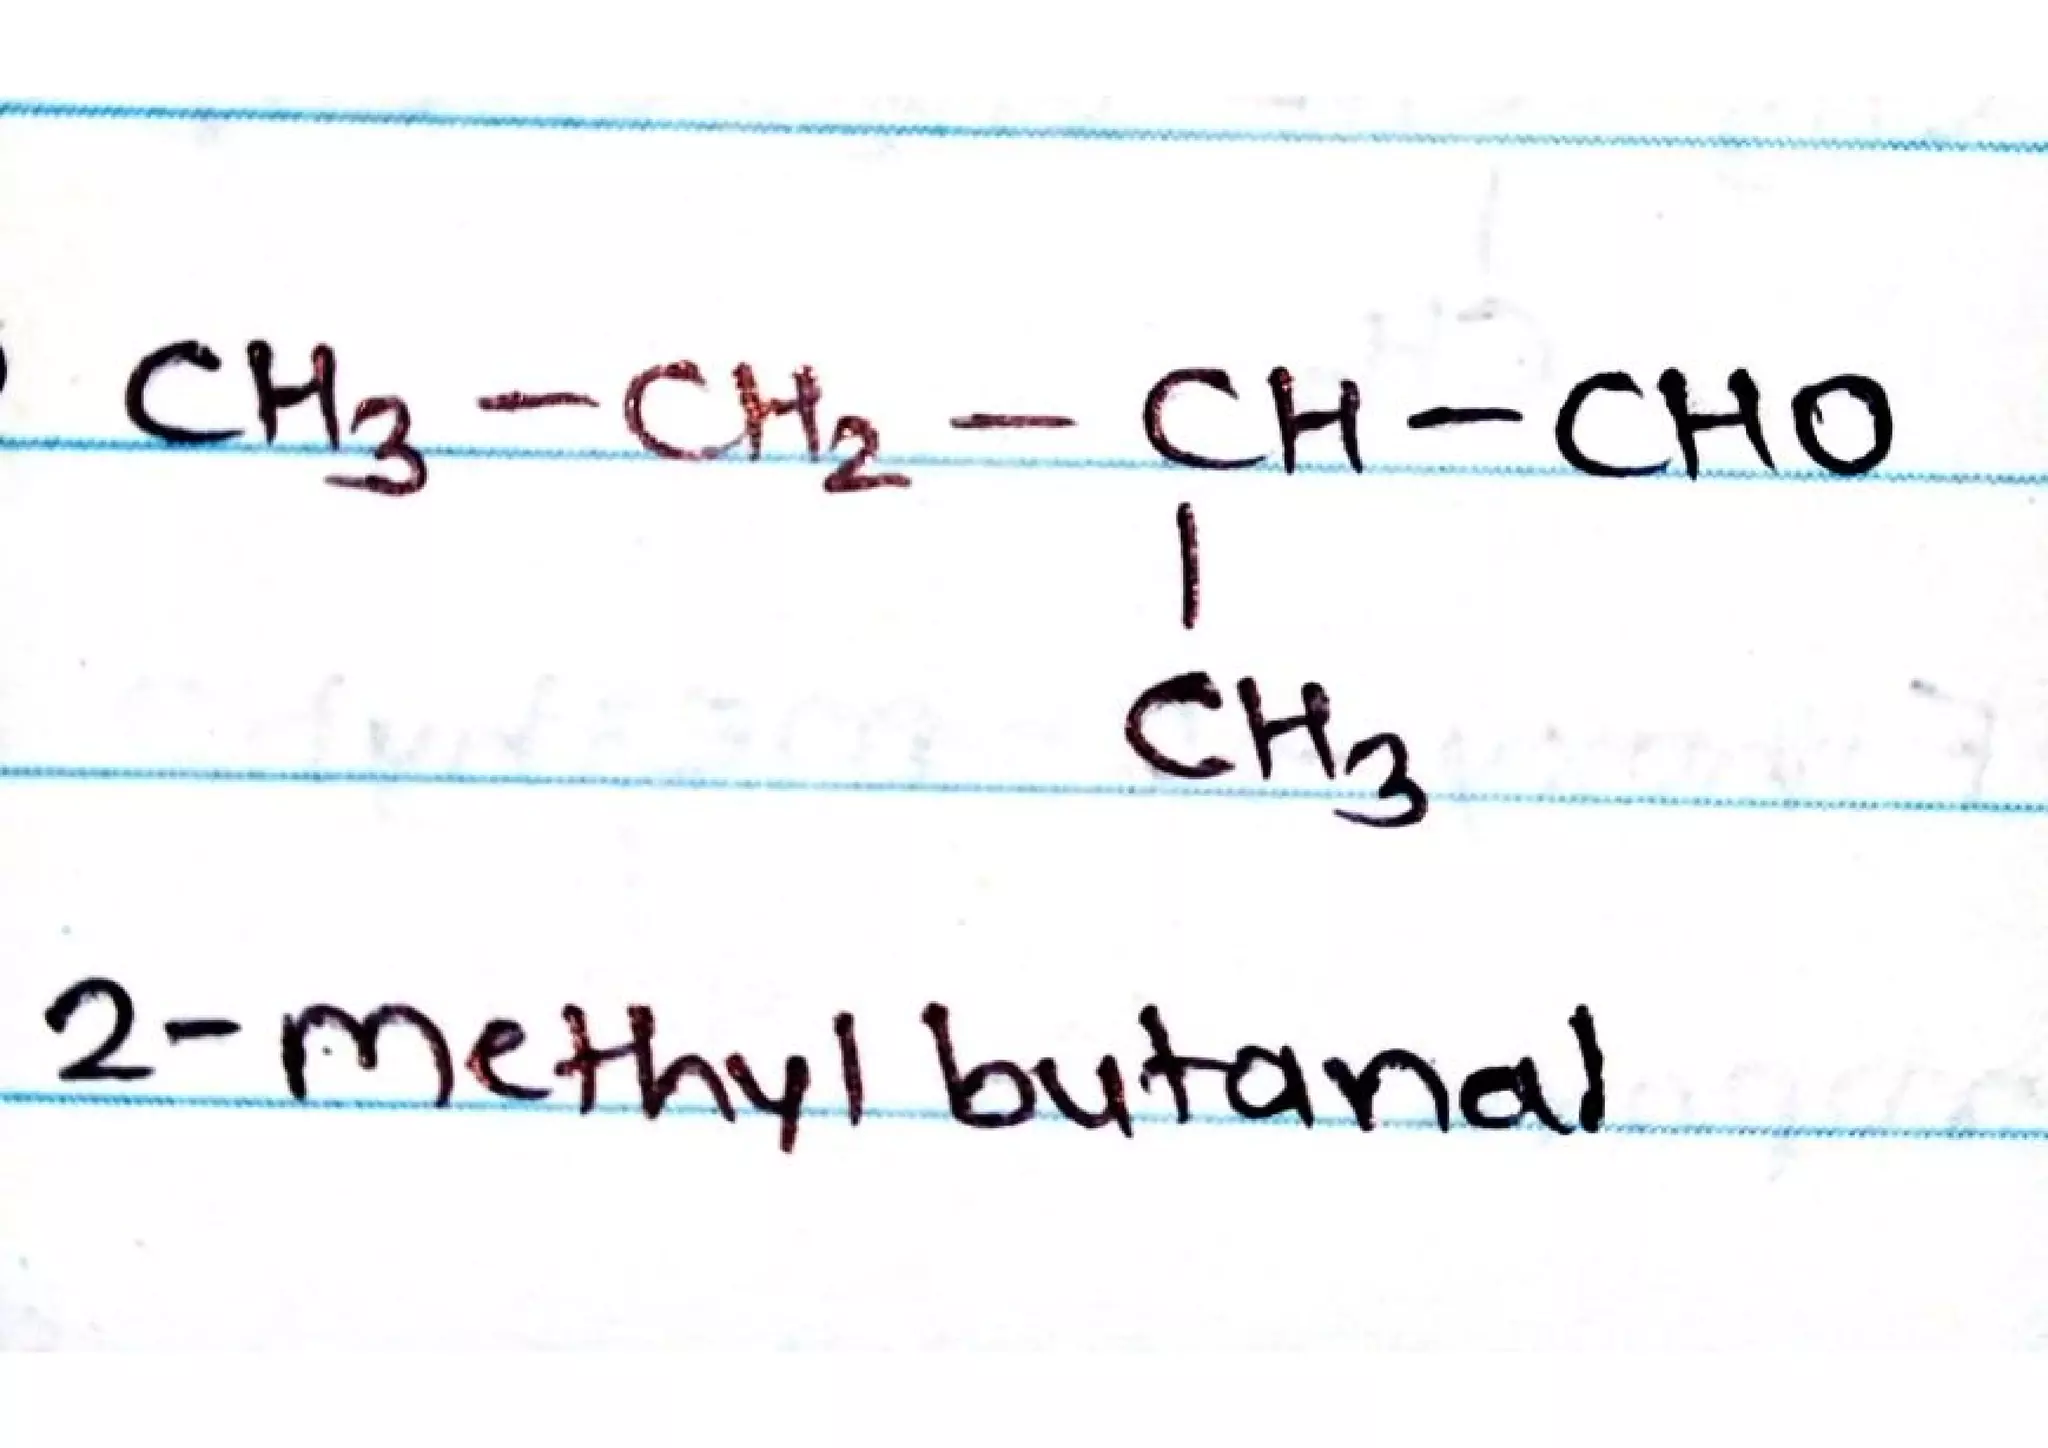 CH₃ — CH₂ — CH — CHO
|
CH₃
2-Methyl butanal